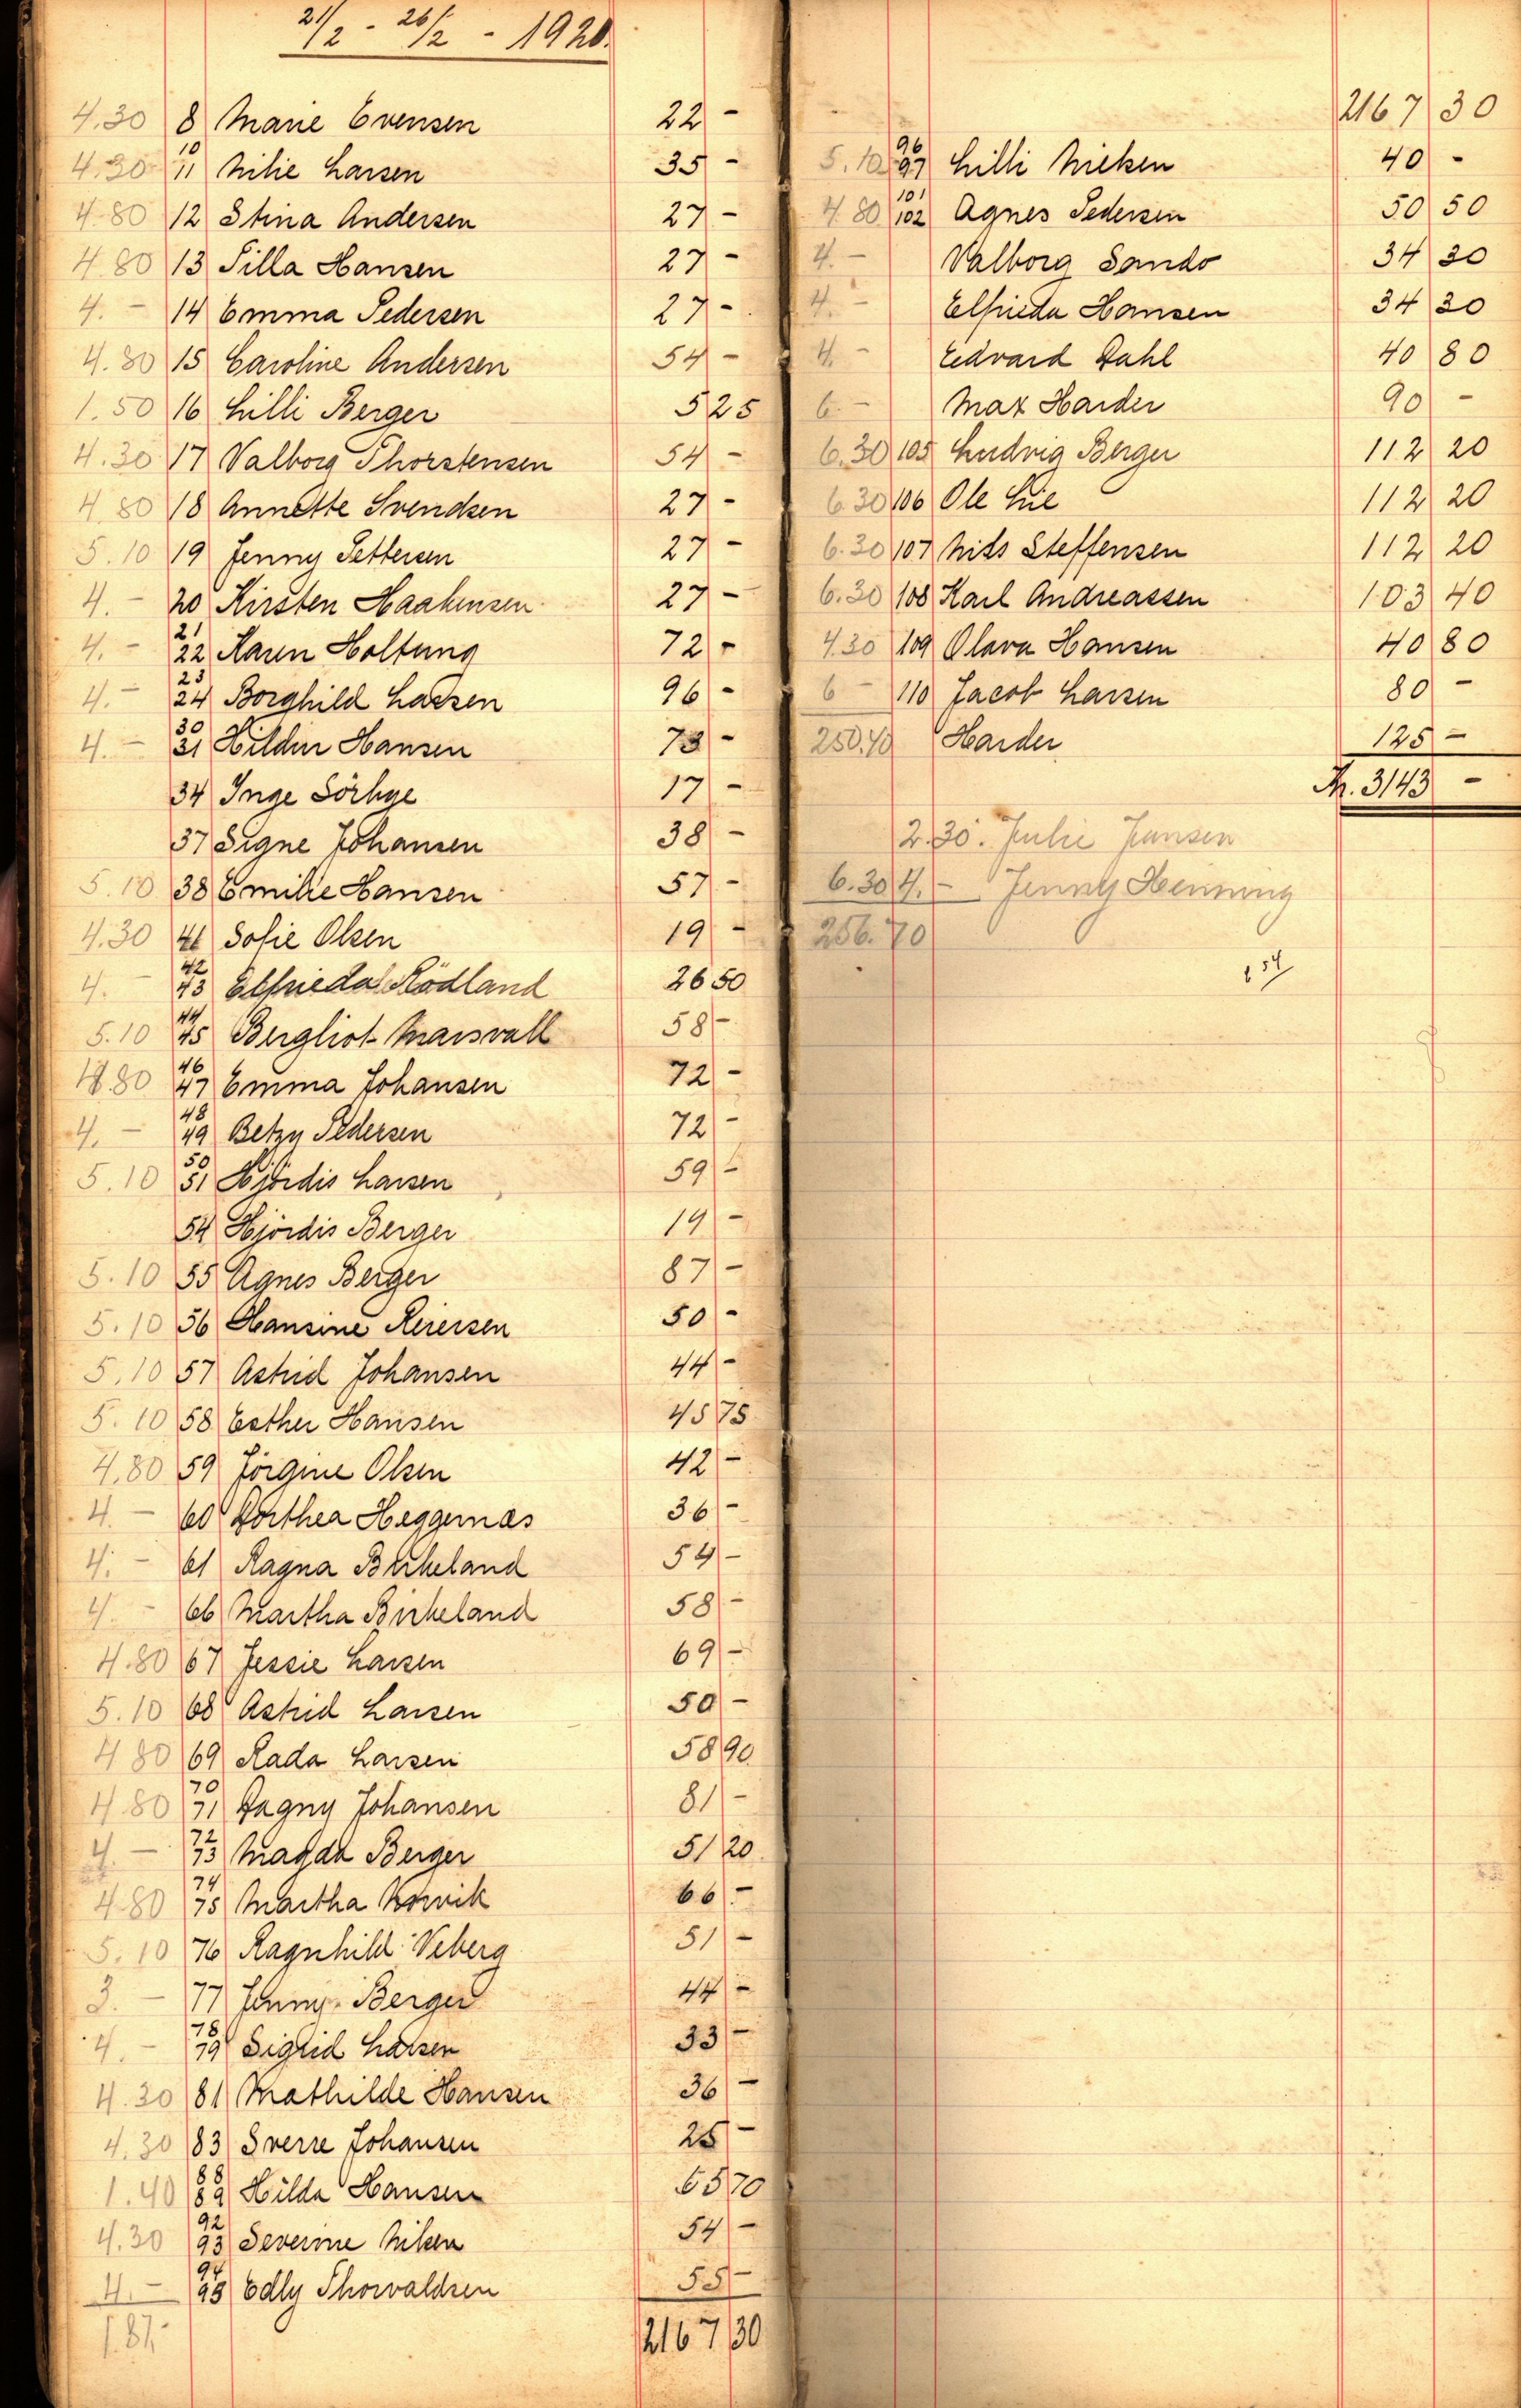 21/2 - 26/2 - 1920.
4.30 8 Marie Evensen 22 -
4.30 10 11 Milie Larsen 35 -
4.80 12 Stina Andersen 27 -
4.80 13 Tilla Hansen 27 -
4. - 14 Emma Pedersen 27 -
4.80 15 Caroline Andersen 54 -
1.50 16 Lilli Berger 5 25
4.30 17 Valborg Thorstensen 54 -
4.80 18 Annette Svendsen 27 -
5.10 19 Jenny Pettersen 27 -
4. - 20 Kirsten Haakensen 27 -
4. - 21 22 Karen Holtung 72 -
4. - 23 24 Borghild Larsen 96 -
4. - 30 31 Hildur Hansen 73 -
34 Inge Sörlye 17 -
37 Signe Johansen 38 -
5.10 38 Emilie Hansen 57 -
4.30 41 Sofie Olsen 19 -
4. - 42 43 Elfrieda Rödland 26 50
5.10 44 45 Bergliot Marsvall 58 -
4.80 46 47 Emma Johansen 72 -
4. - 48 49 Betzy Pedersen 72 -
5.10 50 51 Hjördis Larsen 59 -
54 Hjördis Berger 19 -
5.10 55 Agnes Berger 87 -
5.10 56 Hansine Reiersen 50 -
5.10 57 Astrid Johansen 44 -
5.10 58 Esther Hansen 45 75
4.80 59 Jörgine Olsen 42 -
4. - 60 Dorthea Heggernæs 36 -
4. - 61 Ragna Birkeland 54 -
4. - 66 Martha Birkeland 58 -
4.80 67 Jessie Larsen 69 -
5.10 68 Astrid Larsen 50 -
4.80 69 Rada Larsen 58 90
4.80 70 71 Dagny Johansen 81 -
4. - 72 73 Magda Berger 51 20
4.80 74 75 Martha 66 -
5.10 76 Ragnhild Veberg 51 -
3. - 77 Jenny Berger 44 -
4. - 78 79 Sigrid Larsen 33 -
4.30 81 Mathilde Hansen 36 -
4.30 83 Sverre Johansen 25 -
1.40 88 89 Hilda Hansen 65 70
4.30 92 93 Severine Nilsen 54 -
4. - 94 95 Edly Thorvaldsen 55 -
181,- 2167 30
2167 30
5.10 96 97 Lilli Nielsen 40 -
4.80 101 102 Agnes Pedersen 50 50
4. - Valborg Sando 34 20
4. - Elfrieda Hansen 34 20
4. - Edvard Dahl 40 80
6 - Max Harder 90 -
6.30 105 Ludvig Berger 112 20
6.30 106 Ole Lie 112 20
6.30 107 Nils Steffensen 112 20
6.30 108 Karl Andreassen 103 40
4.30 109 Olava Hansen 40 80
6 - 110 Jacob Larsen 80 -
250.40 Harder 125 -
Kr. 3143 -
2.30. Julie Jansen
6.30 4. - Jenny Henning
256.70